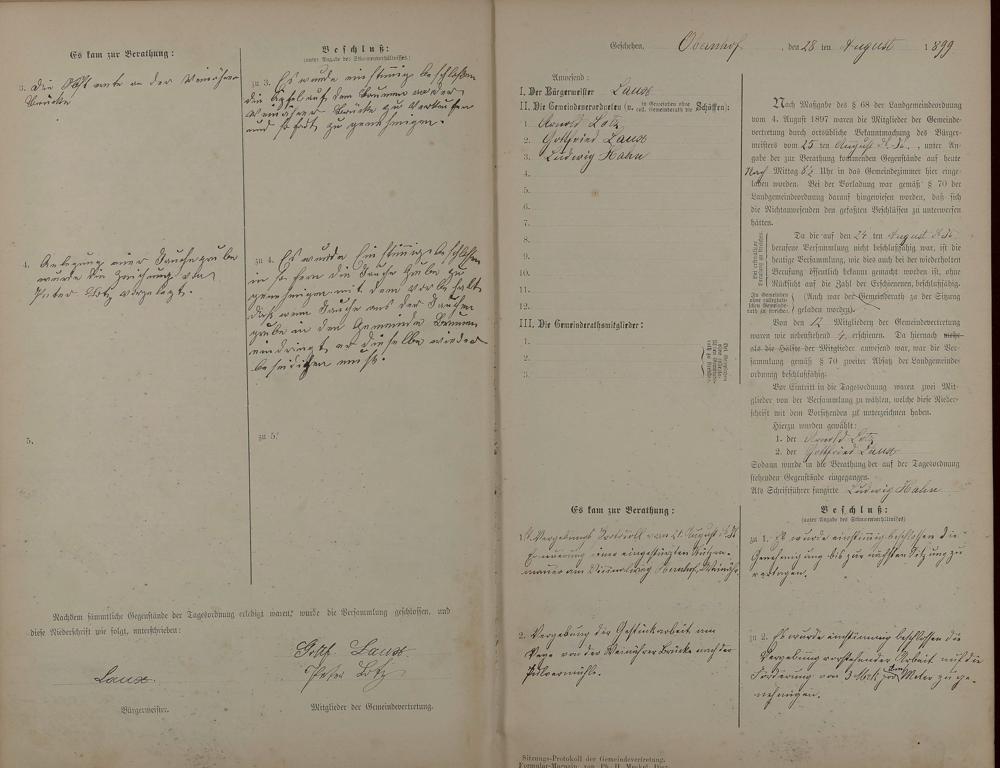 Es kam zur Berathung:
3. Die Obst ernte an der Weinährer
Brücke
4. Anlegung einer Jauchegrube
wurde die Zeichnung von
Peter Lotz vorgelegt.
5.
Beschluß:
(unter Angabe des Stimmenverhältnisses:)
zu 3. Es wurde einstimmig beschlossen
die Apfel auf den Baumen an der
Weinährer Brücke zu verkaufen
und sofort zu genehmigen.
zu 4. Es wurde Einstimmig beschlossen
in so fern die Jauche Grube zu
genehmigen mit dem vorbehalt
daß wenn Jauche aus der Jauchen
grube in den Gemeinde Brunnen
eindringt er dieselbe wieder
beseidigen muß.
zu 5.
Nachdem sämmtliche Gegenstände der Tagesordnung erledigt waren, wurde die Versammlung geschlossen, und
diese Niederschrift wie folgt, unterschrieben:
Laux.
Bürgermeister.
Gottf. Laux
Peter Lotz
Mitglieder der Gemeindevertretung.
Geschehen, Obernhof, den 28 ten August 1899
Anwesend:
I. Der Bürgermeister Laux
II. Die Gemeindeverordneten (u. in Gemeinden ohne coll. Gemeinderath die Schöffen):
1. Arnold Lotz
2. Gottfried Laux
3. Ludwig Hahn
4.
5.
6.
7.
8.
9.
10.
11.
12.
III. Die Gemeinderathsmitglieder:
1.
2.
3.
Nach Maßgabe des § 68 der Landgemeindeordnung
vom 4. August 1897 waren die Mitglieder der Gemeinde-
vertretung durch ortsübliche Bekanntmachung des Bürger-
meisters vom 25 ten August d. Js., unter An-
gabe der zur Berathung kommenden Gegenstände auf heute
Nach Mittag 8½ Uhr in das Gemeindezimmer hier einge-
laden worden. Bei der Vorladung war gemäß § 70 der
Landgemeindeordnung darauf hingewiesen worden, daß sich
die Nichtanwesenden den gefaßten Beschlüssen zu unterwerfen
hätten.
Da die auf den 24 ten August d. Js.
berufene Versammlung nicht beschlußfähig war, ist die
heutige Versammlung, wie dies auch bei der wiederholten
Berufung öffentlich bekannt gemacht worden ist, ohne
Rücksicht auf die Zahl der Erschienenen, beschlußfähig.
(Auch war der Gemeinderath zu der Sitzung
geladen worden).
Von den 12 Mitgliedern der Gemeindevertretung
waren wie nebenstehend 4 erschienen. Da hiernach mehr
als die Hälfte der Mitglieder anwesend war, war die Ver-
sammlung gemäß § 70 zweiter Absatz der Landgemeinde-
ordnung beschlußfähig.
Vor Eintritt in die Tagesordnung waren zwei Mit-
glieder von der Versammlung zu wählen, welche diese Nieder-
schrift mit dem Vorsitzenden zu unterzeichnen haben.
Hierzu wurden gewählt:
1. der Arnold Lotz
2. der Gottfried Laux
Sodann wurde in die Berathung der auf der Tagesordnung
stehenden Gegenstände eingegangen.
Als Schriftführer fungirte Ludwig Hahn
Es kam zur Berathung:
1. Vergebungs Protocoll vom 21. August d. Js
Erneuerung einer eingestürzten Stützen-
mauer am Vicinalweg Obernhof, Weinähr.
2. Vergebung der Gestückarbeit am
Wege von der Weinährer Brücke nach der
Pulvermühle.
Beschluß:
(unter Angabe des Stimmenverhältnisses)
zu 1. Es wurde einstimmig beschlossen die
Genehmigung bis zur nächsten Sitzung zu
vertagen.
zu 2. Es wurde einstimmig beschlossen die
Vergebung vorstehender Arbeit auf die
Forderung von 3 Mrk pro Meter zu ge-
nehmigen.
Sitzungs-Protokoll der Gemeindevertretung.
Formular-Magazin von Ph. H. Meckel, Diez.